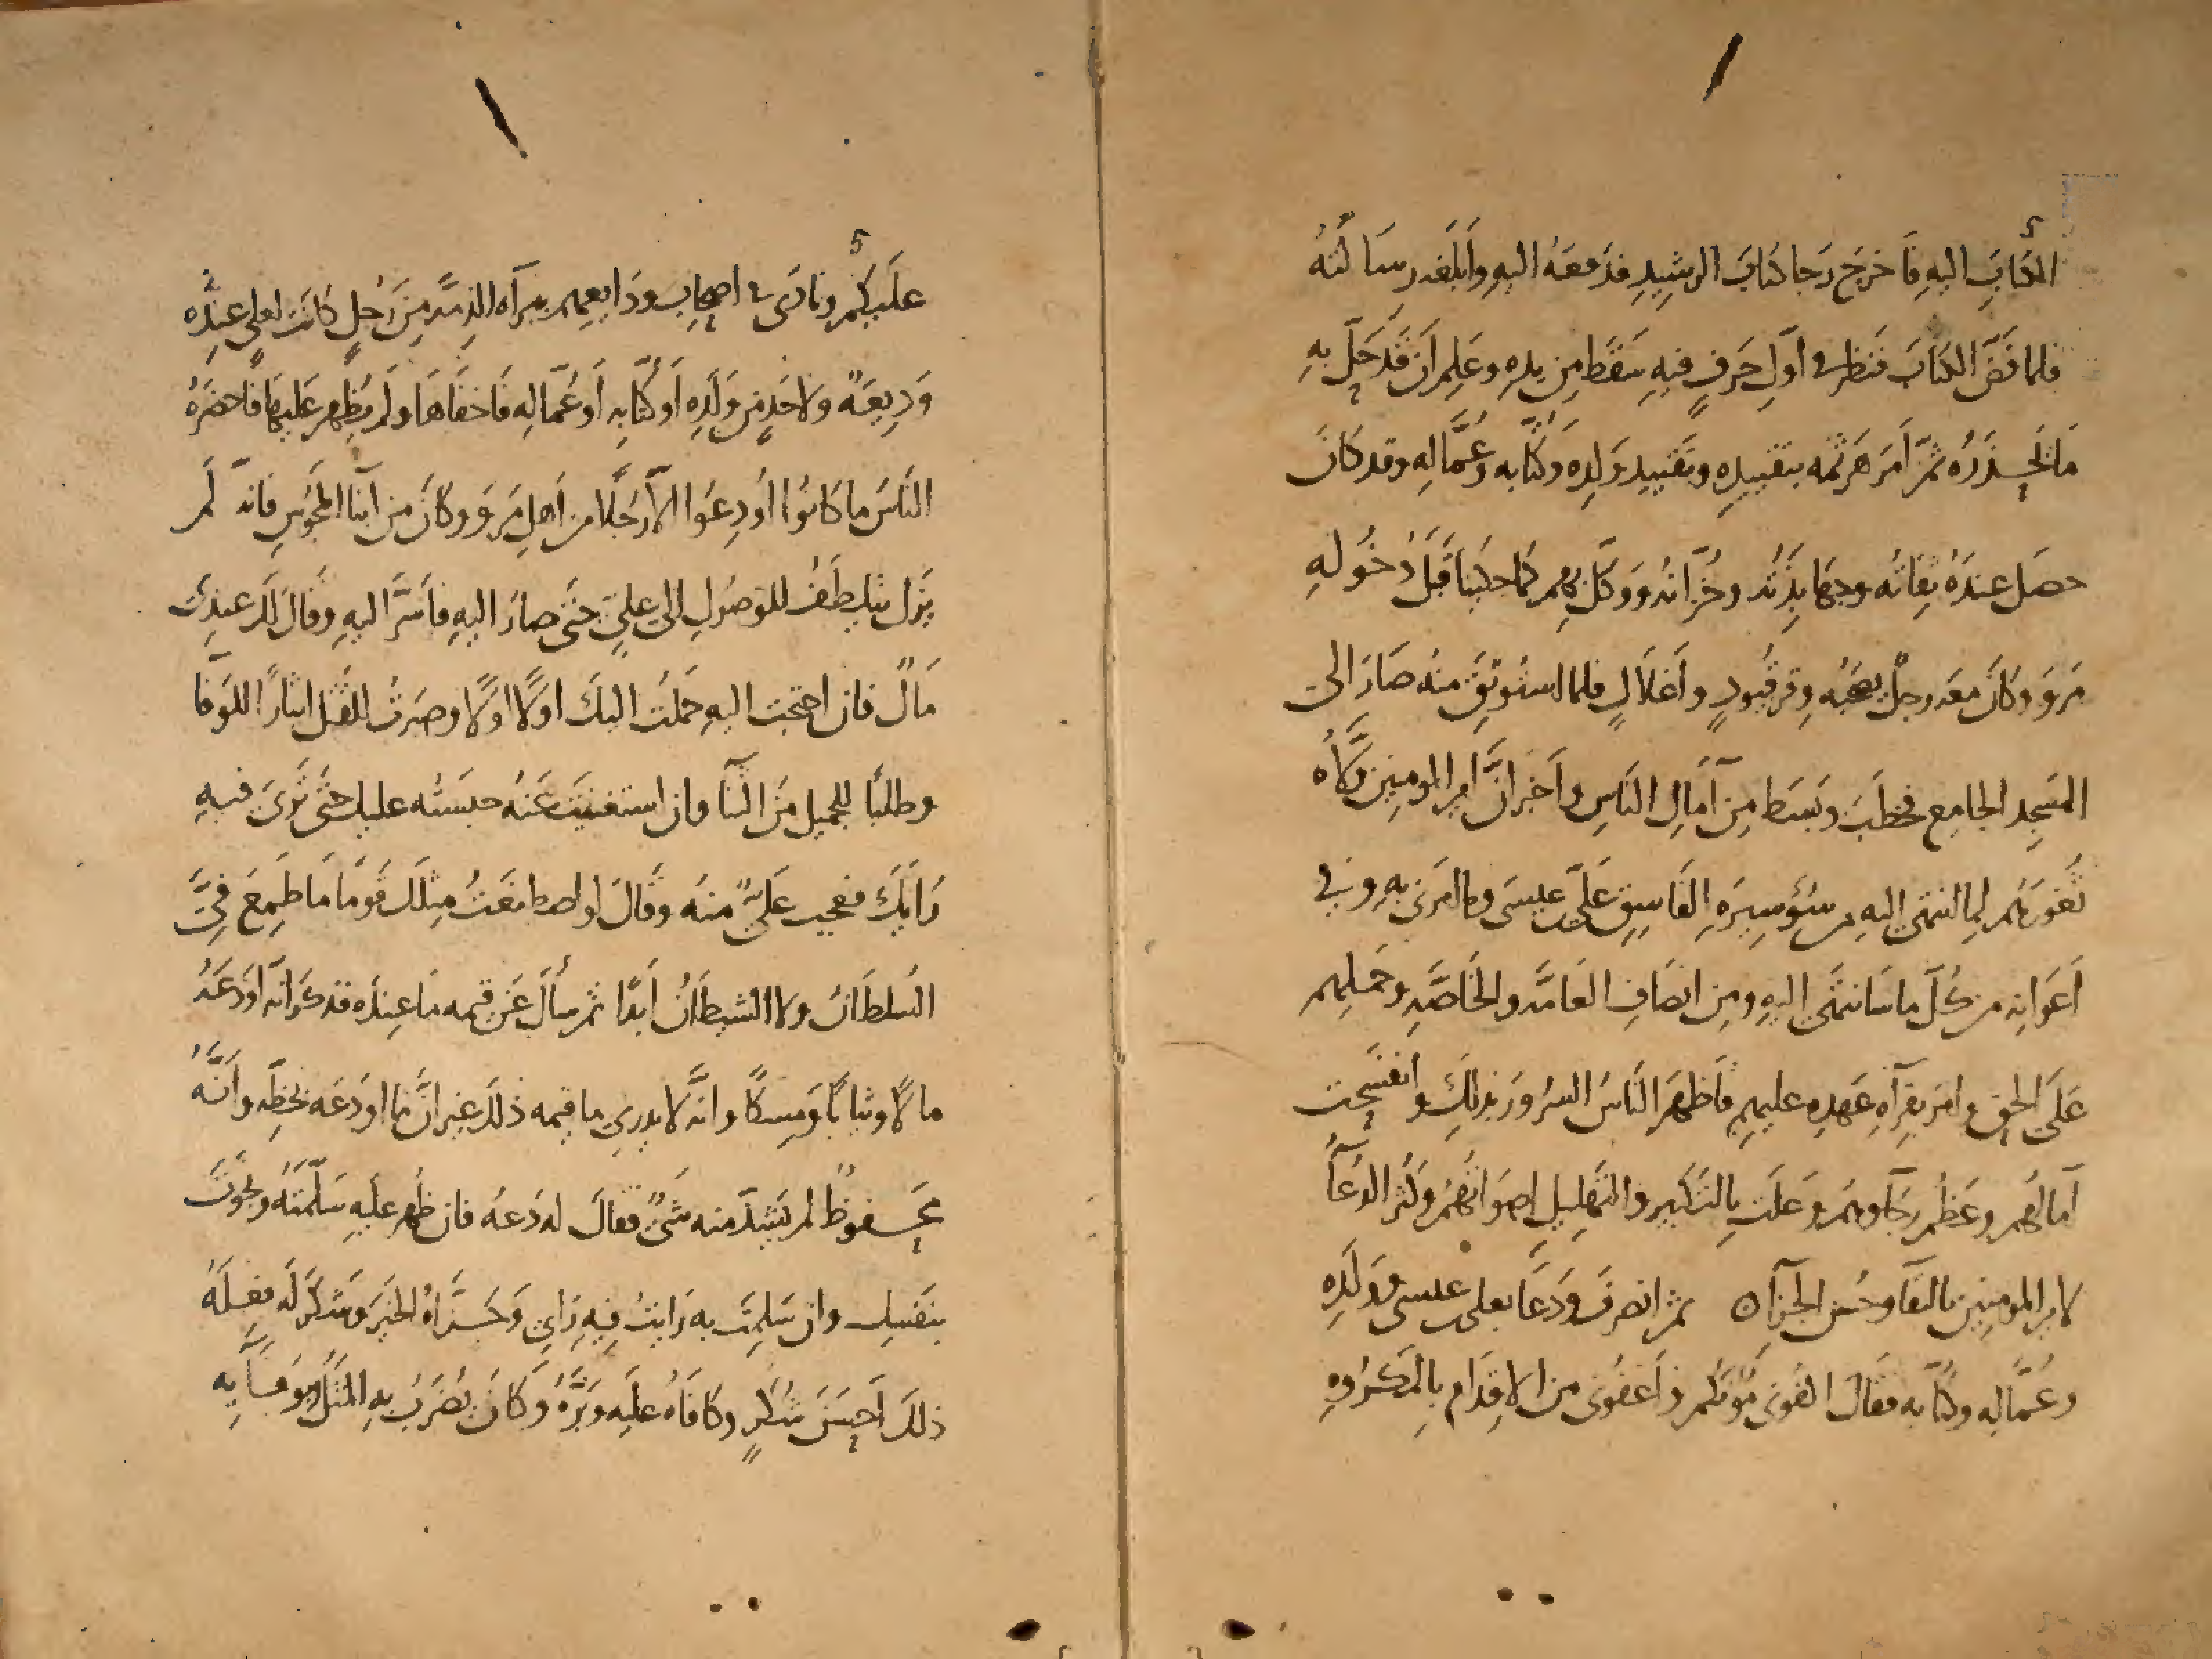 الكتابَ اليهِ فاَخرَجَ رَجا كتابَ الرشِيدِ فدَفعَهُ اليهِ وأبلَغه رسَالتَهُ
فلما فَضَّ الكتابَ فنظر في أوّلِ حَرفٍ فيهِ سَقَطَ مِن يدِهِ وعَلِم أَن قَد حَلَّ بِهِ
مَا يَحذَرُه ثمّ اَمَر هَرثَمه بتقييدِه وتقييد وَلِدِه وكُتّابه وعُمَّالِهِ وقد كانَ
حصَل عندَهُ ثِقاتُه وجهَابِذَتُه وخُزّانُه ووَكّل بهِم كما حكينا قَبلَ دُخُولِهِ
مَروَ وكانَ معَه رجلٌ يصحَبُه وِقر قُيودٍ وأَغلَالٍ فلما استُوثِقَ منه صَارَ الى
المسَجِد الجامِع فخطَبَ وبَسَط مِن آمَالِ النَاسِ وأَخبرَ انَّ أمير المومنين ولّاه
ثُغورَهُم لِما انتهَى اليهِ من سُوءِ سِيرَهِ الفَاسِقِ عَلي بن عيسَى وما امَرَني بِهِ وفي
اَعوَانِه من كُلّ ما سَانتهَى اليهِ ومِن انصَافِ العَامّه والخَاصَّهِ وحَملِهِم
عَلَى الحق وامَر بقِرآهِ عَهدِه عليهِم فأظهَرَ النَاسُ السرُورَ بذلِكَ وانفسَحت
آمَالُهم وعَظُم رجَآوهُم وعَلَت بِالتكبير والتَهلِيلِ اصوَاتُهُم وكَثُر الدُعَآ
لامير المومِنِين بالبقَا وحُسنِ الجزآءِ ثم انصرَفَ ودَعَا بعلي بن عيسى ووَلَدِهِ
وعُمّالِهِ وكُتّابه فقَال اكفُوني مَؤُونَتكُم واَعفُوني من الاقدَام بِالمكرُوهِ
علَيكُم ونادَى في اصحابِ ودَايعِهِم ببرآه الذِمّهِ مِن رَجُلٍ كانت لعلي عِندَه
وَدِيعَهٌ ولاحَدٍ من وَلَدِه اَو كُتّابِه اَو عُمّالِهِ فَاخفَاهَا ولَم يُظهِر عَليهَا فاحضَرَهُ
النَاسُ ما كانُوا أُودِعُوا الاّ رَجُلًا من اَهلِ مَروَ وكانَ من ابنآ المَجُوسِ فانه لَم
يَزَل يتلطَّفُ للوصُولِ الى عليٍ حَتى صارَ اليهِ فأسَرَّ اليهِ وقال لَك عِندِي
مَالٌ فان احتجت اليهِ حَملتُ اليكَ اوّلًا اولًا وصَبرتُ للقتل ايثارًا للوَفَا
وطلبًا للجميل مِن الثنآ وان استغنيتَ عَنهُ حبَستُه عليك حَتى تَرى فيهِ
رَايَكَ فعجِبَ عَليّ منه وقَالَ لو اصطَنَعتُ مِثلَكَ قَومًا مَا طَمِعَ فِيَّ
السُلطَانُ ولا الشيطَانُ اَبدًا ثم سأل عَن قِيمه مَا عِندَه فذكَر انه اودَعَهُ
مالًا وثيابًا ومِسكًا وانه لا يدري ما قيمه ذلك غير انَّ ما اودَعَه بخطِه وانّهُ
محفوظٌ لم يَشِذّ منه شَيٌ فقَالَ له دَعهُ فان ظُهِرَ عليهِ سَلّمتَه ونجَوتَ
بنَفسِك وان سَلِمتَ به رَايتُ فِيهِ رَايي وجَزَاهُ الخيرَ وشكَرَ لَه فِعلَهُ
ذلكَ اَحسَنَ شُكرٍ وكافَاهُ علَيهِ وبَرَّهُ وكانَ يُضرَبُ بهِ المثَلُ بوَفَآيِه